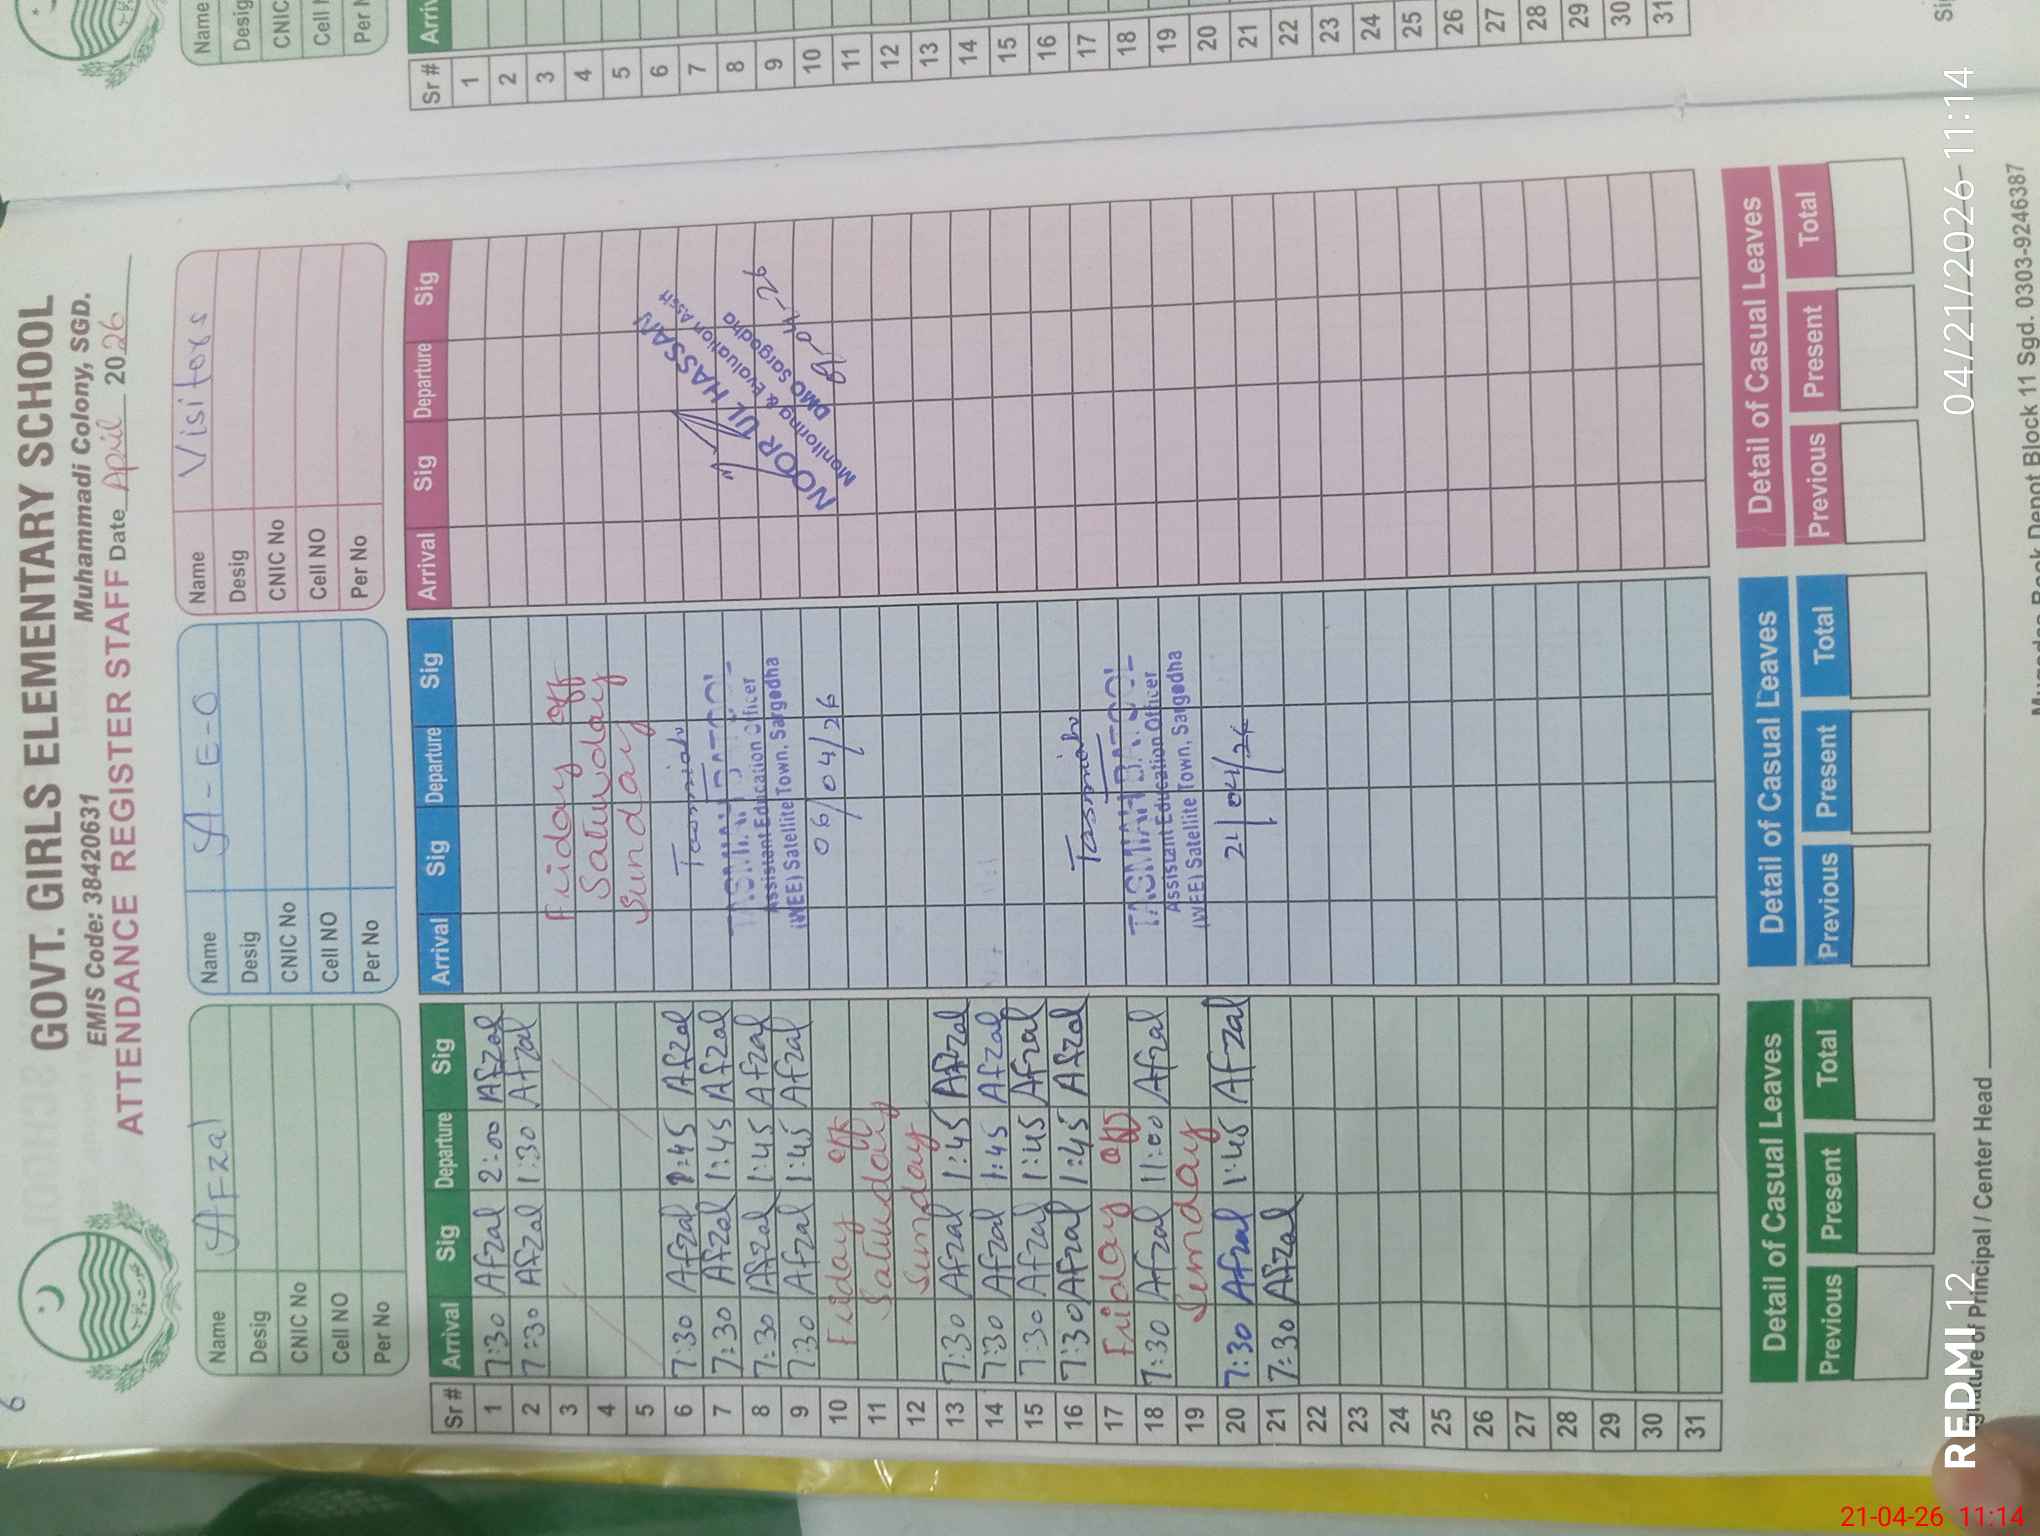 6
GOVT. GIRLS ELEMENTARY SCHOOL
EMIS Code: 38420631 Muhammadi Colony, SGD.
ATTENDANCE REGISTER STAFF Date April 2026
Name Afzal
Desig
CNIC No
Cell NO
Per No
Name A-E-O
Desig
CNIC No
Cell NO
Per No
Name Visitors
Desig
CNIC No
Cell NO
Per No
Sr # Arrival Sig Departure Sig Arrival Sig Departure Sig Arrival Sig Departure Sig
1 7:30 Afzal 2:00 Afzal
2 7:30 Afzal 1:30 Afzal
3 Friday off
4 Saturday
5 Sunday
6 7:30 Afzal 1:45 Afzal
7 7:30 Afzal 1:45 Afzal
8 7:30 Afzal 1:45 Afzal
9 7:30 Afzal 1:45 Afzal
10 Friday off
11 Saturday
12 Sunday
13 7:30 Afzal 1:45 Afzal
14 7:30 Afzal 1:45 Afzal
15 7:30 Afzal 1:45 Afzal
16 7:30 Afzal 1:45 Afzal
17 Friday off
18 7:30 Afzal 11:00 Afzal
19 Sunday
20 7:30 Afzal 1:45 Afzal
21 7:30 Afzal
22
23
24
25
26
27
28
29
30
31
Assistant Education Officer
(WEE) Satellite Town, Sargodha
06/04/26
Assistant Education Officer
(WEE) Satellite Town, Sargodha
21/04/26
NOOR UL HASSAN
Monitoring & Evaluation Assit
DMO Sargodha
Detail of Casual Leaves
Previous Present Total
Detail of Casual Leaves
Previous Present Total
Detail of Casual Leaves
Previous Present Total
Signature of Principal / Center Head
Depot Block 11 Sgd. 0303-9246387
Name
Desig
CNIC
Cell
Per
Sr # Arriv
1
2
3
4
5
6
7
8
9
10
11
12
13
14
15
16
17
18
19
20
21
22
23
24
25
26
27
28
29
30
31
Si
REDMI 12
04/21/2026 11:14
21-04-26 11:14